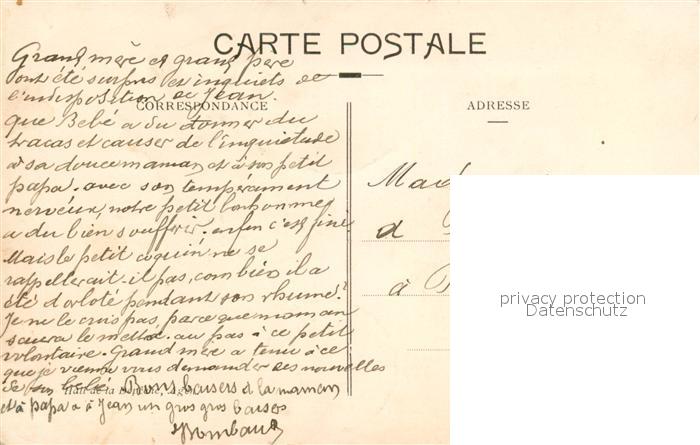 CARTE POSTALE
CORRESPONDANCE
ADRESSE
Grand mère et grand père
ont été surpris et inquiets de
l'indisposition de Jean.
que Bébé a du donner du
tracas et causer de l'inquietude
à sa douce maman et à son petit
papa. avec son tempérament
nerveux, notre petit bonhomme
a du bien souffrir. enfin c'est fini
Mais le petit coquin ne se
rappellerait il pas, combien il a
été dorloté pendant son rhume?
Je ne le crois pas, parce que maman
saura le mettre au pas à ce petit
volontaire. Grand mère a tenu à ce
que je vienne vous demander des nouvelles
de son bébé. Bons baisers à la maman
et à papa et à Jean un gros gros baiser
à
privacy protection
Datenschutz